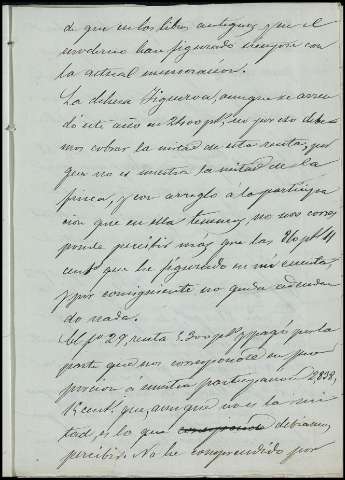 de que en los libros antiguos, que el
moderno han figurado siempre con
la actual numeración.
La dehesa Figueroa, aunque se arren
dó este año en 2400 pts, no por eso debe-
mos cobrar la mitad de esta renta, por
que no es nuestra la mitad de la
finca, y con arreglo á la participa
cion que en ella tenemos, no nos corres
ponde percibir mas que las
cents que he figurado en mi cuenta,
y por consiguiente no queda adeudan
do nada.
El fº 29, renta pts, y pagó por la
parte que nos corresponde en pro
porcion a nuestra participacion 2,838,
cents que, aunque no es la mi
tad, es lo que corresponde debiamos
percibir. No he comprendido por